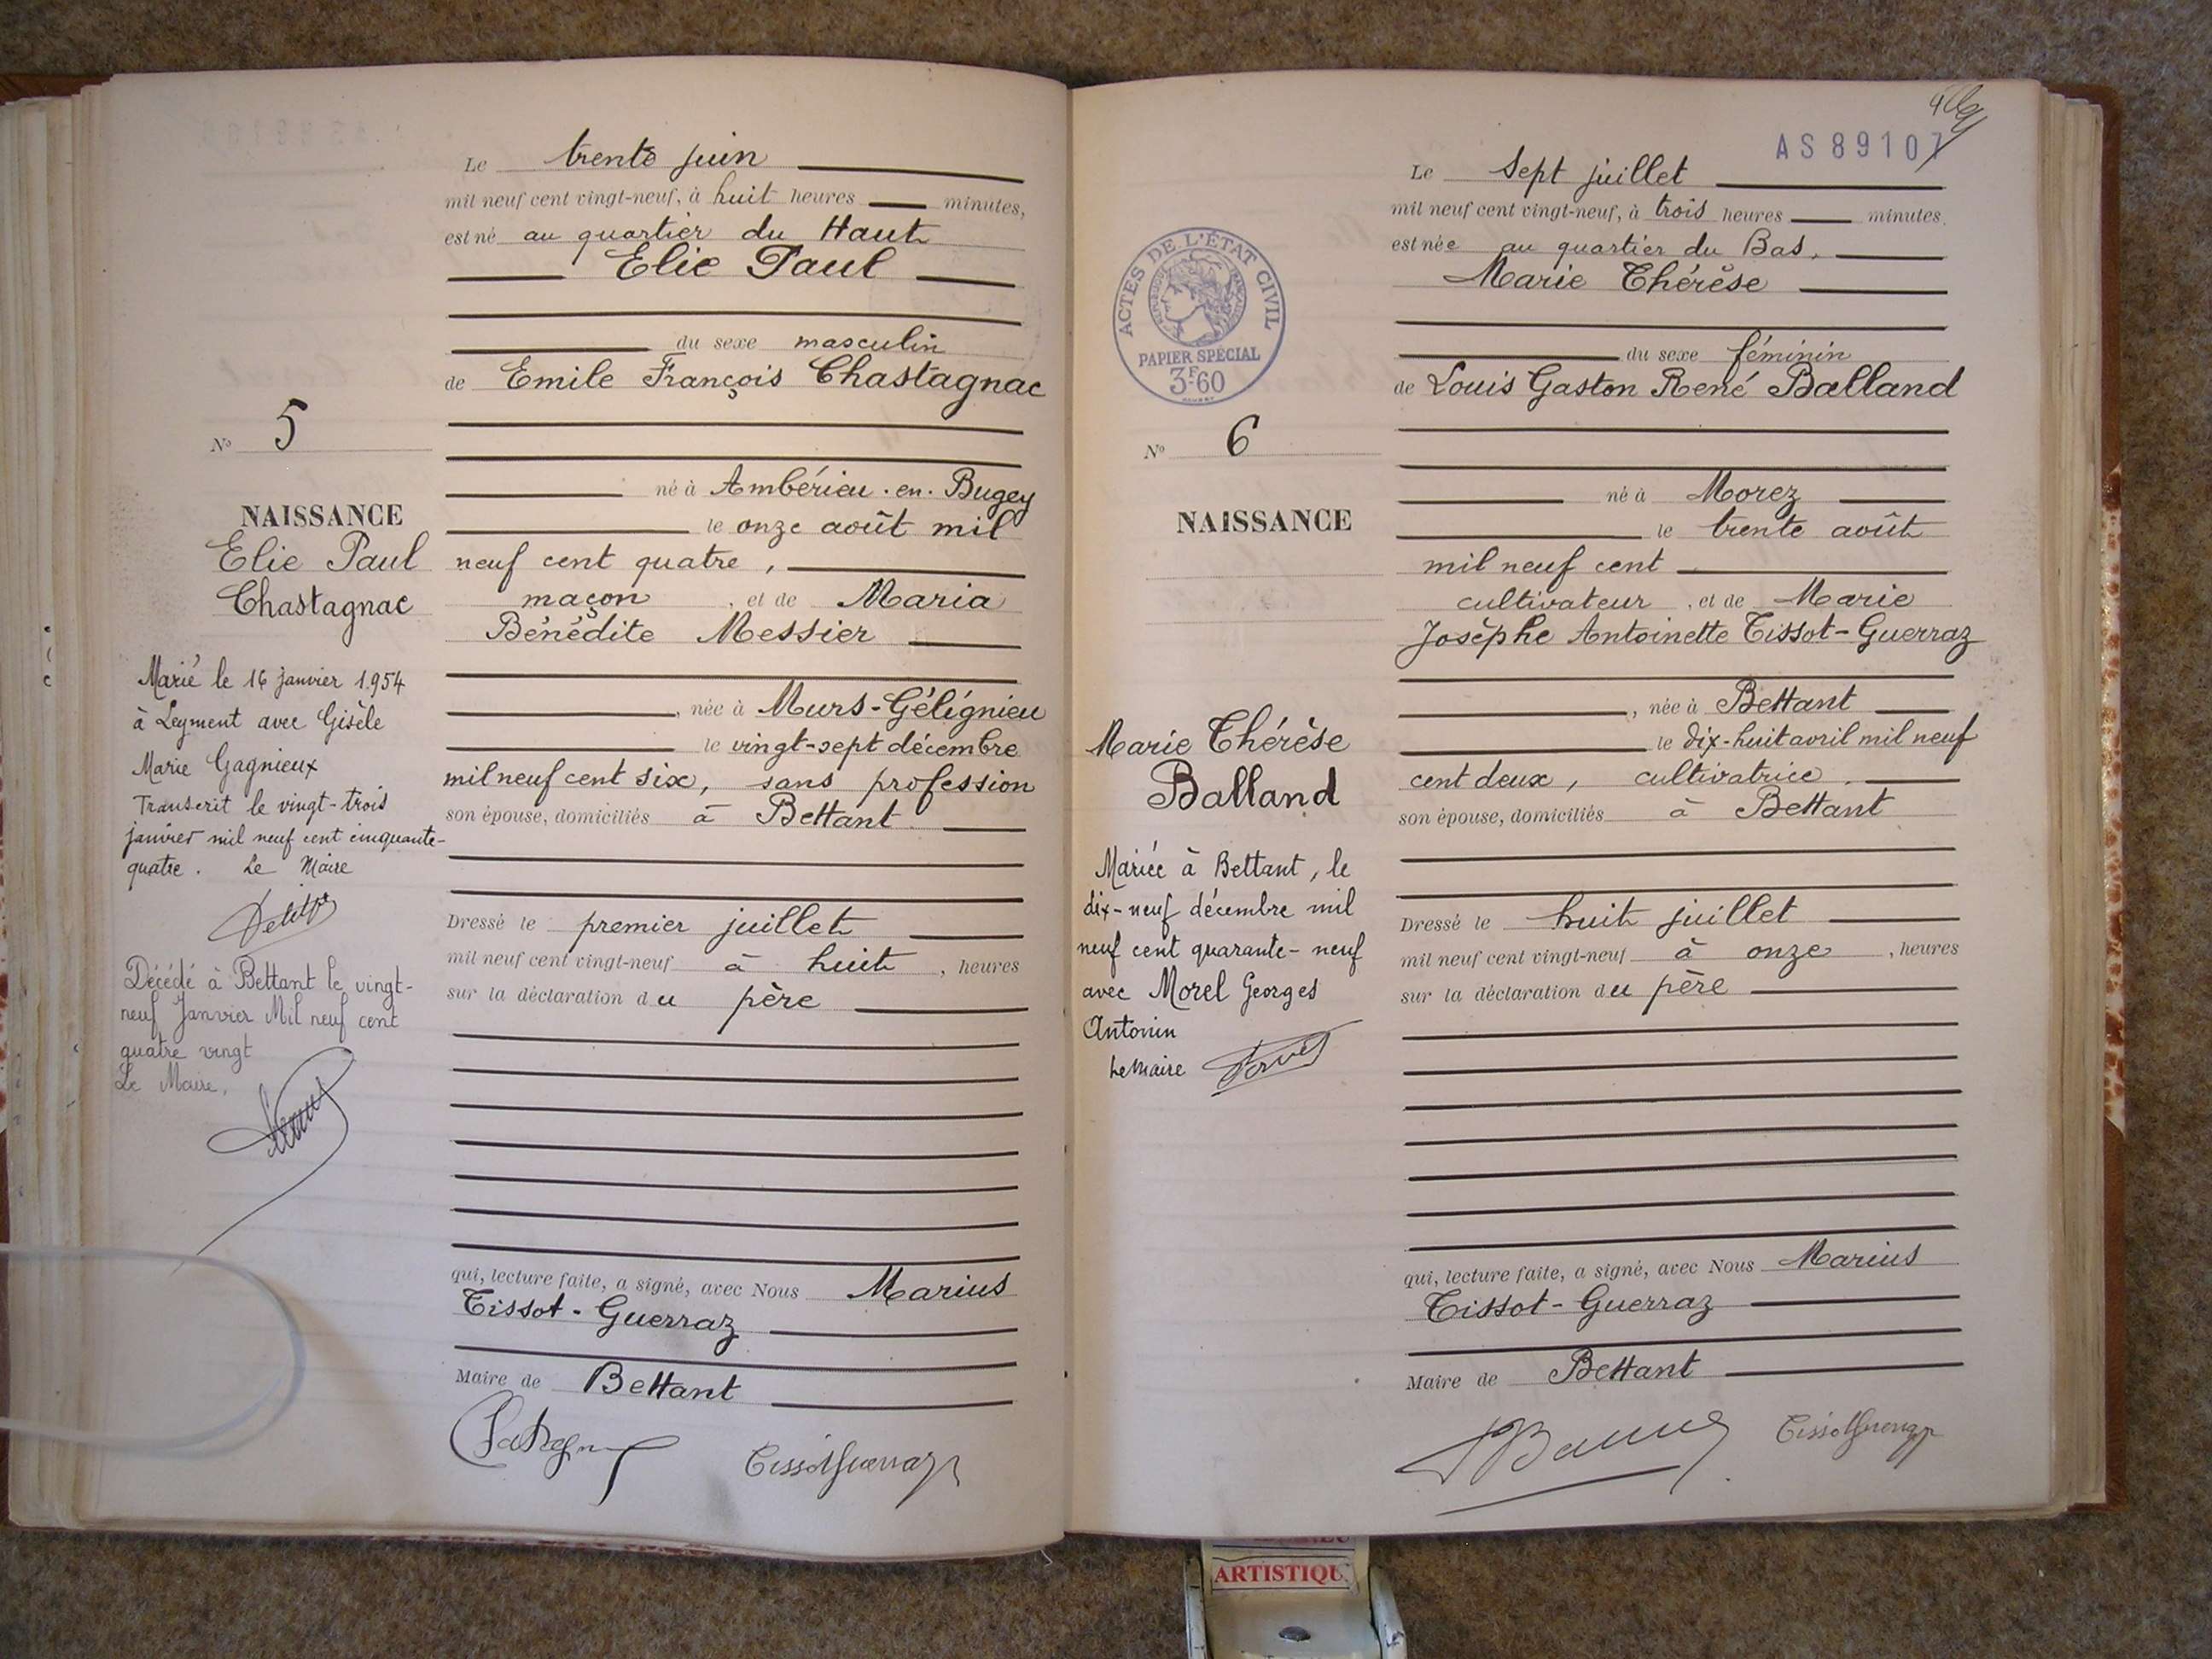 Le trente juin
mil neuf cent vingt-neuf, à huit heures minutes,
est né au quartier du Haut
Elie Paul
du sexe masculin
de Emile François Chastagnac
né à Ambérieu-en-Bugey
le onze août mil
neuf cent quatre,
maçon, et de Maria
Bénédite Messier
, née à Murs-Gélignieu
le vingt-sept décembre
mil neuf cent six, sans profession
son épouse, domiciliés à Bettant
Dressé le premier juillet
mil neuf cent vingt-neuf à huit, heures
sur la déclaration du père
qui, lecture faite, a signé, avec Nous Marius
Tissot-Guerraz
Maire de Bettant
TissotGuerraz
No 5
NAISSANCE
Elie Paul
Chastagnac
Marié le 16 janvier 1954
à Leyment avec Gisèle
Marie Gagnieux
Transcrit le vingt-trois
janvier mil neuf cent cinquante-
quatre. Le Maire
Décédé à Bettant le vingt-
neuf Janvier Mil neuf cent
quatre vingt
Le Maire,
AS 89107
Le sept juillet
mil neuf cent vingt-neuf, à trois heures minutes
est née au quartier du Bas,
Marie Thérèse
du sexe féminin
de Louis Gaston René Balland
né à Morez
le trente août
mil neuf cent
cultivateur, et de Marie
Josèphe Antoinette Tissot-Guerraz
, née à Bettant
le dix-huit avril mil neuf
cent deux, cultivatrice.
son épouse, domiciliés à Bettant
Dressé le huit juillet
mil neuf cent vingt-neuf à onze, heures
sur la déclaration du père
qui, lecture faite, a signé, avec Nous Marius
Tissot-Guerraz
Maire de Bettant
TissotGuerraz
ACTES DE L'ÉTAT CIVIL
RÉPUBLIQUE FRANÇAISE
PAPIER SPÉCIAL
3F60
No 6
NAISSANCE
Marie Thérèse
Balland
Mariée à Bettant, le
dix-neuf décembre mil
neuf cent quarante-neuf
avec Morel Georges
Antonin
Le Maire
ARTISTIQU